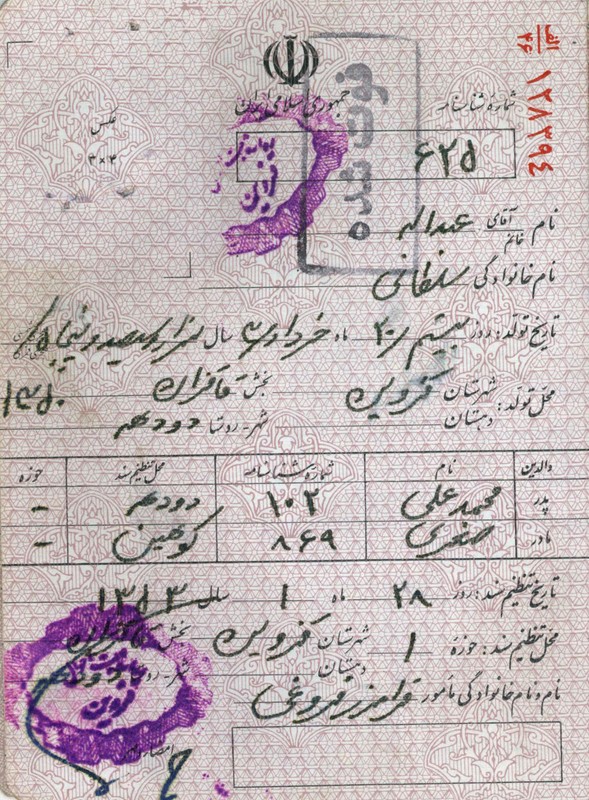 الف
۴۶
۱۲۸۳۹۴
جمهوری اسلامی ایران
فوت شده
عکس
۳×۴
شماره شناسنامه
۶۲۵
نام آقای خانم عبداله
نام خانوادگی سلطانی
تاریخ تولد: روز بیستم ۲۰ ماه خرداد سال هزار سیصد و پنجاه
۱۳۵۰
محل تولد: شهرستان قزوین بخش قاقزان
دهستان شهر - روستا دودهه
والدین نام شماره شناسنامه محل تنظیم سند حوزه
پدر محمدعلی ۱۰۲ دودهه -
مادر صغری ۸۶۹ کوهین -
تاریخ تنظیم سند: روز ۲۸ ماه ۱ سال ۱۳۵۳
محل تنظیم سند: حوزه ۱ شهرستان قزوین بخش
دهستان شهر - روستا
قزوین
نام و نام خانوادگی مأمور فرامرز فروغی